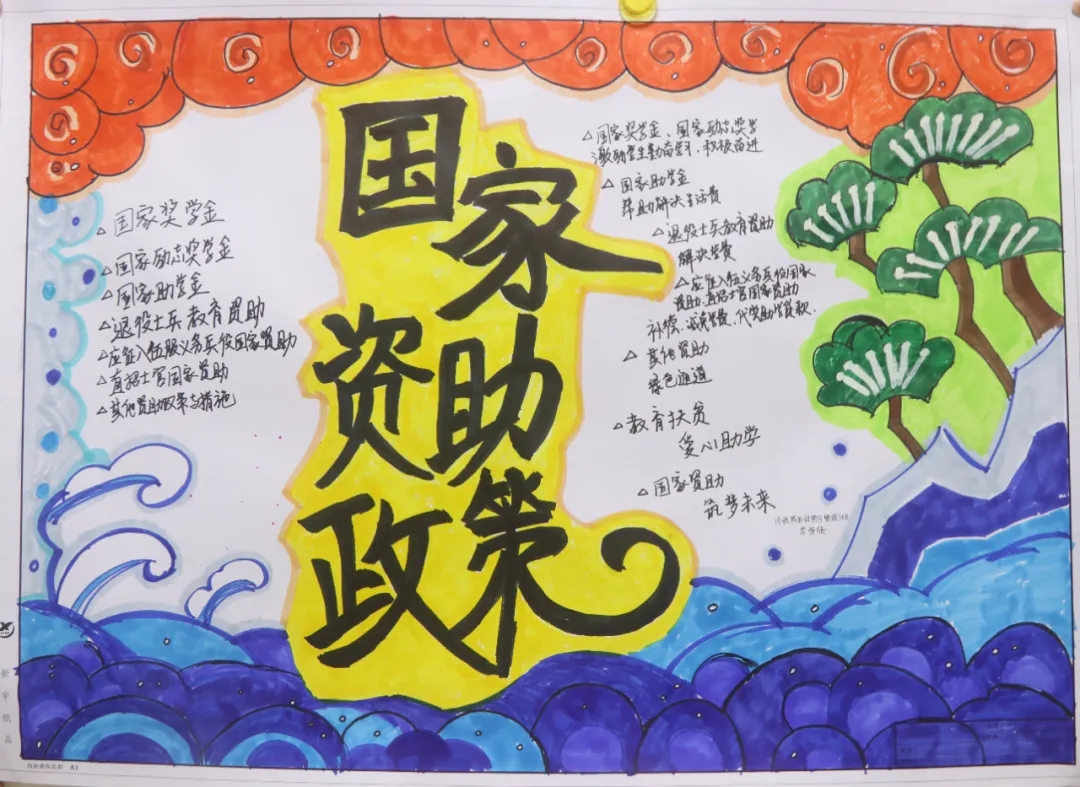 国家
资助
政策
△国家奖学金
△国家励志奖学金
△国家助学金
△退役士兵教育资助
△应征入伍服义务兵役国家资助
△直招士官国家资助
△其他资助政策与措施
△国家奖学金、国家励志奖学
激励学生勤奋学习、积极奋进
△国家助学金
帮助解决生活费
△退役士兵教育资助
解决学费
△应征入伍义务兵役国家
资助、直招士官国家资助
补偿、减免学费、代偿助学贷款.
△其他资助
绿色通道
△教育扶贫
爱心助学
△国家资助
筑梦未来
新宇纸品
A1